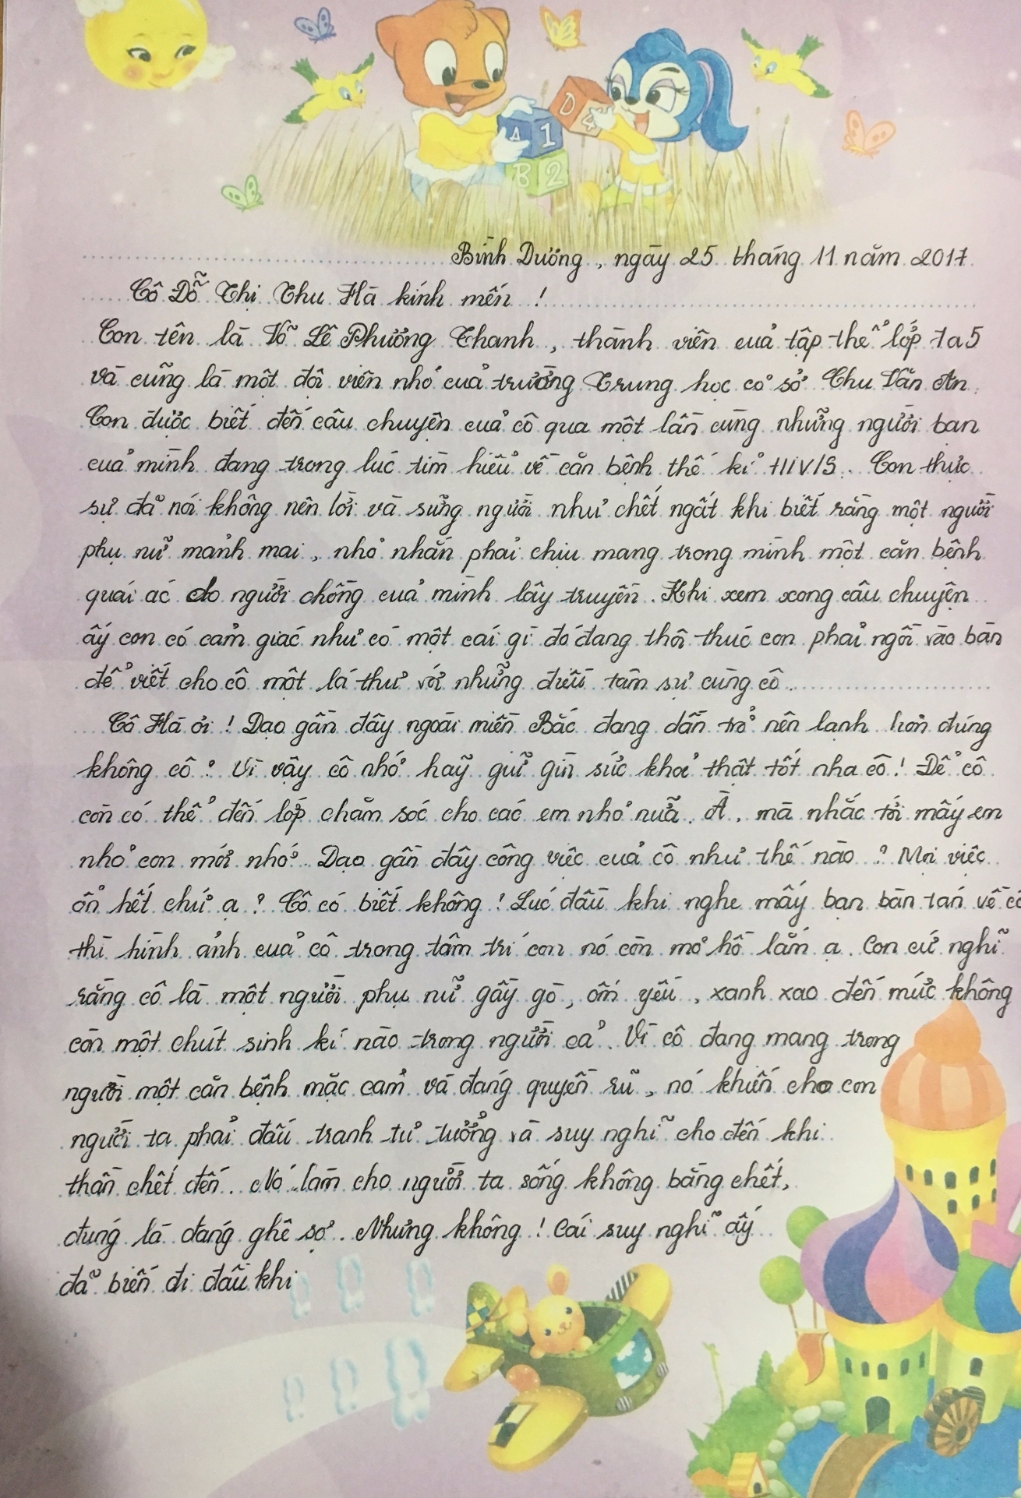 A 1
D 4
B 2
Bình Dương, ngày 25 tháng 11 năm 2017
Cô Đỗ Thị Thu Hà kính mến !
Con tên là Võ Lê Phương Thanh, thành viên của tập thể lớp 7a5
và cũng là một đội viên nhỏ của trường Trung học cơ sở Chu Văn An.
Con được biết đến câu chuyện của cô qua một lần cùng những người bạn
của mình đang trong lúc tìm hiểu về căn bệnh thế kỉ HIV/S. Con thực
sự đã nói không nên lời và sững người như chết ngất khi biết rằng một người
phụ nữ mảnh mai, nhỏ nhắn phải chịu mang trong mình một căn bệnh
quái ác do người chồng của mình lây truyền. Khi xem xong câu chuyện
ấy con có cảm giác như có một cái gì đó đang thôi thúc con phải ngồi vào bàn
để viết cho cô một lá thư với những điều tâm sự cùng cô.
Cô Hà ơi ! Dạo gần đây ngoài miền Bắc đang dần trở nên lạnh hơn đúng
không cô ? Vì vậy cô nhớ hãy giữ gìn sức khoẻ thật tốt nha cô ! Để cô
còn có thể đến lớp chăm sóc cho các em nhỏ nữa. À, mà nhắc tới mấy em
nhỏ con mới nhớ. Dạo gần đây công việc của cô như thế nào ? Mọi việc
ổn hết chứ ạ ? Cô có biết không ! Lúc đầu khi nghe mấy bạn bàn tán về cô
thì hình ảnh của cô trong tâm trí con nó còn mơ hồ lắm ạ. Con cứ nghĩ
rằng cô là một người phụ nữ gầy gò, ốm yếu, xanh xao đến mức không
còn một chút sinh kí nào trong người cả. Vì cô đang mang trong
người một căn bệnh mặc cảm và đáng quyền rũ, nó khiến cho con
người ta phải đấu tranh tư tưởng và suy nghĩ cho đến khi
thần chết đến. Nó làm cho người ta sống không bằng chết,
đúng là đáng ghê sợ. Nhưng không ! Cái suy nghĩ ấy
đã biến đi đâu khi